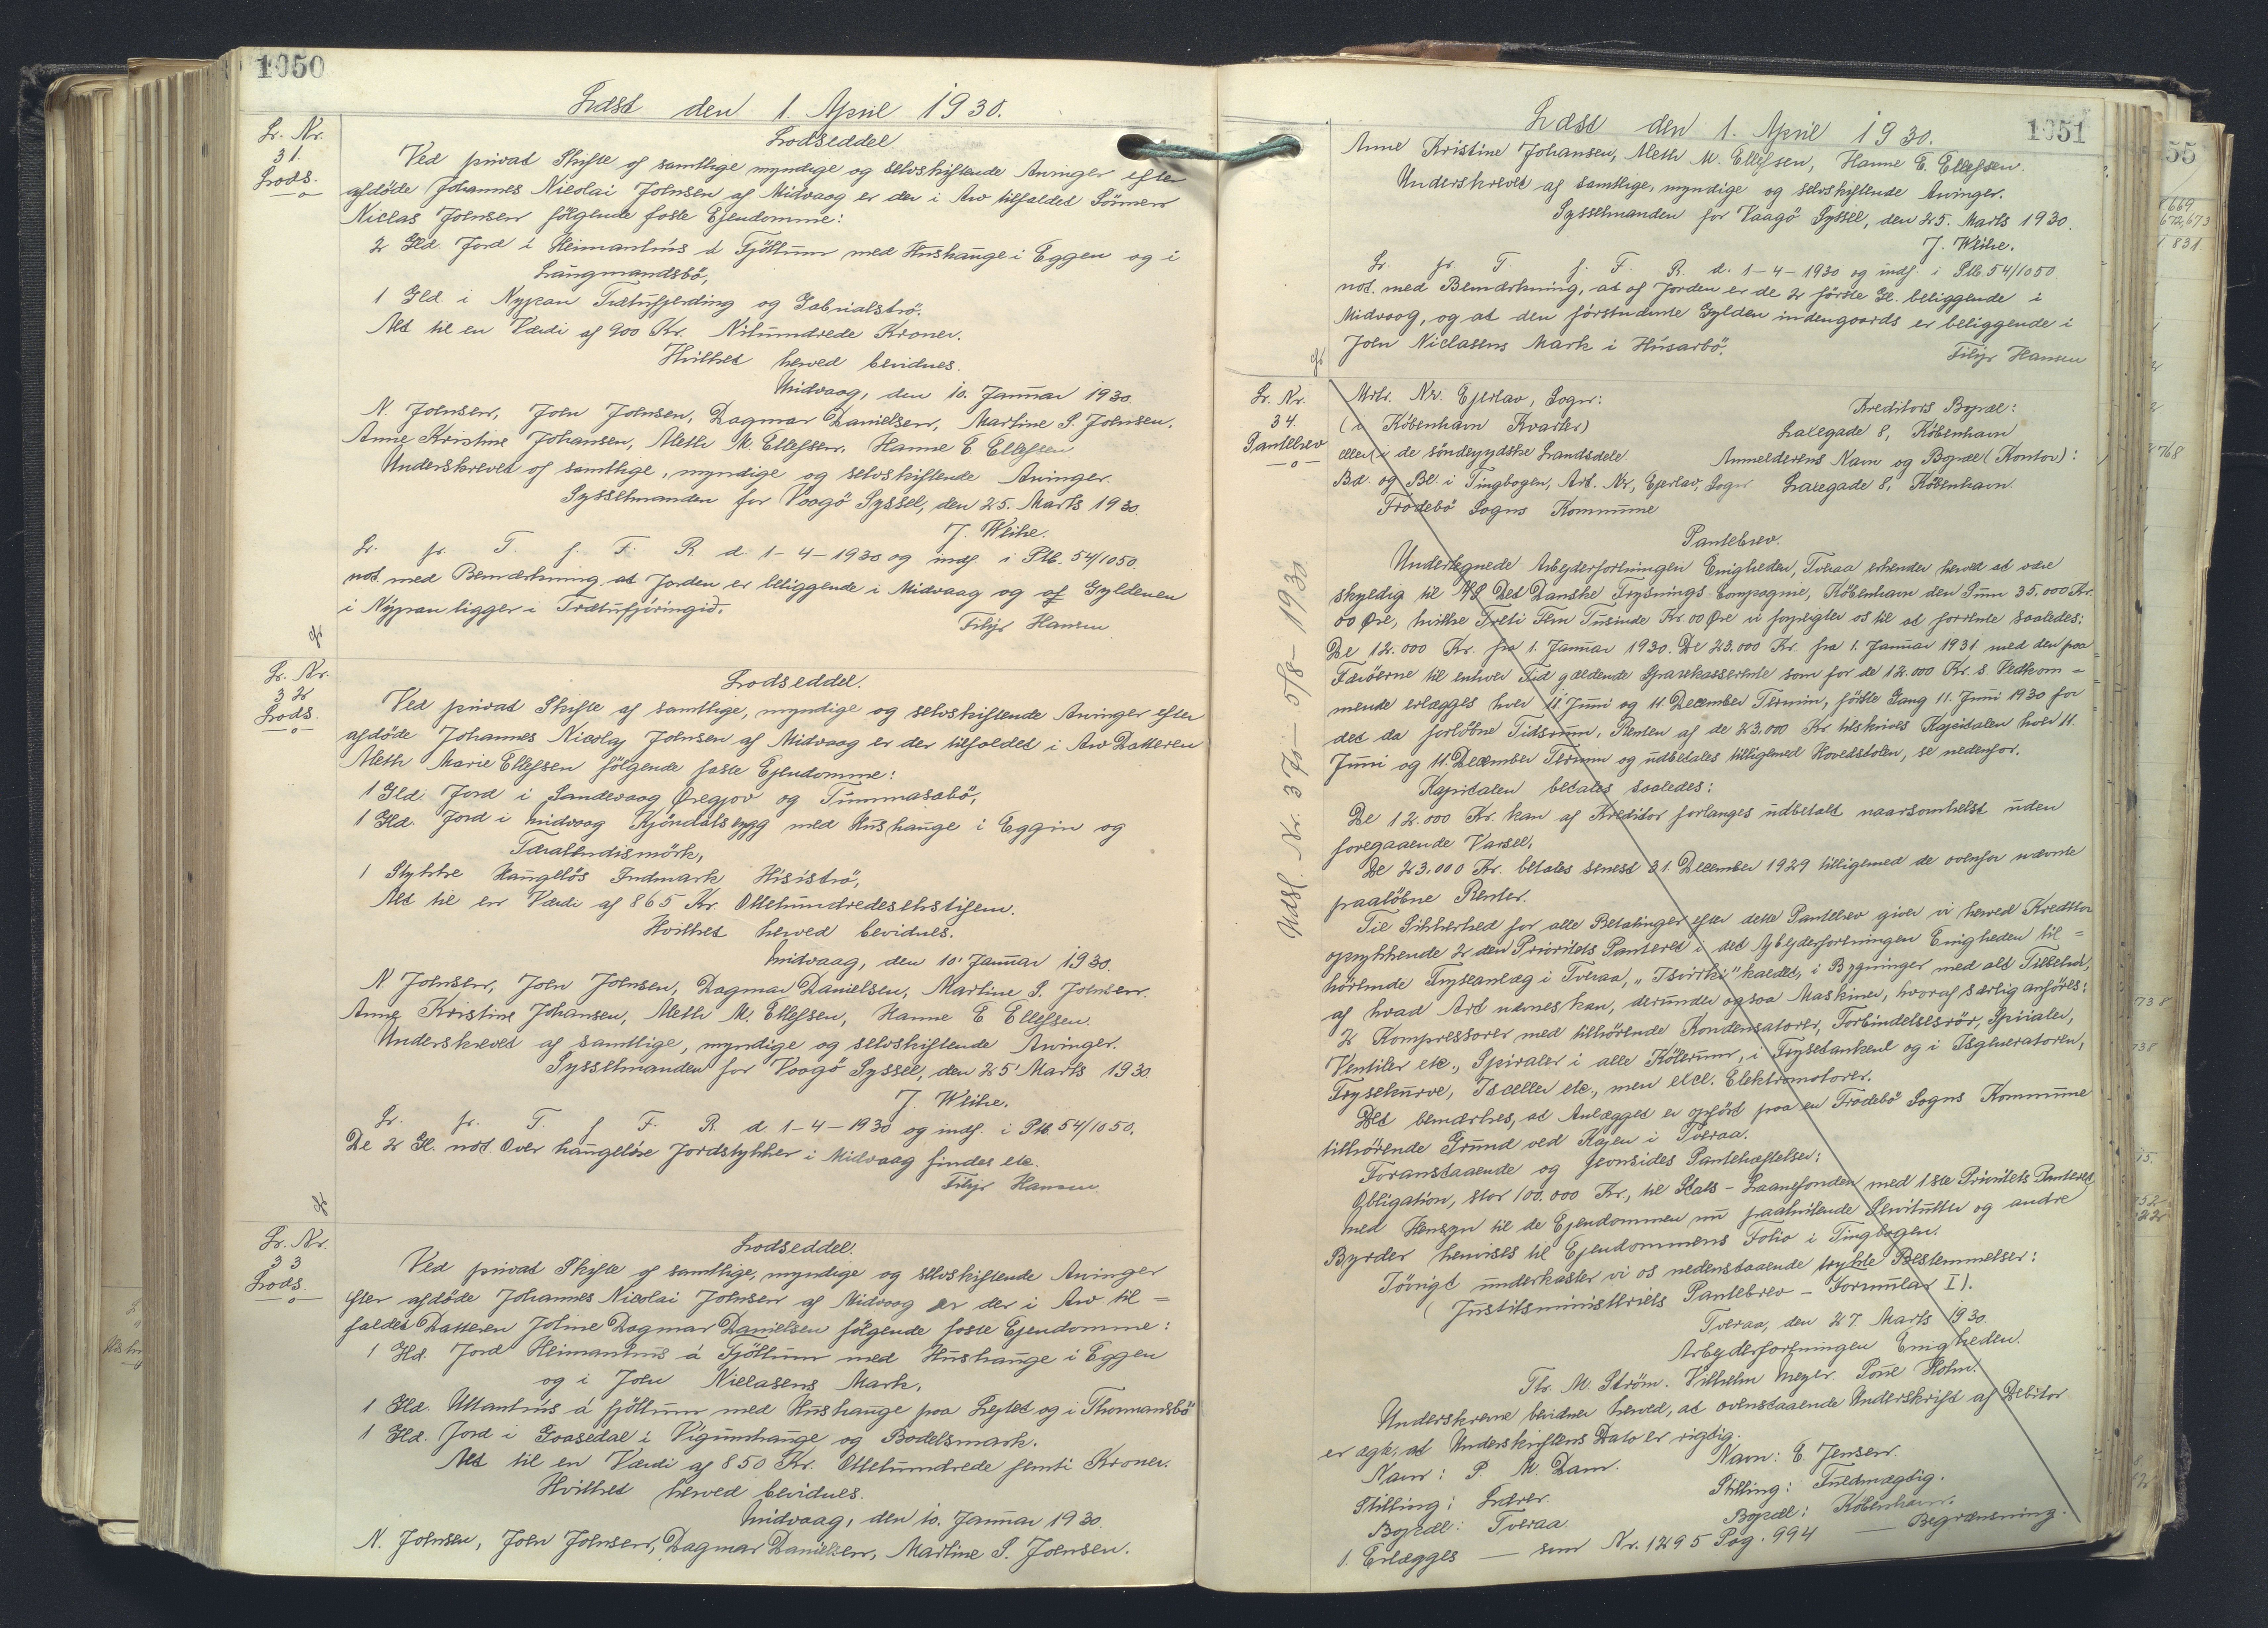 1050
Læst den 1. April 1930.
Lr. Nr.
31.
Lods.
Lodseddel
Ved privat Skifte af samtlige myndige og selvskiftende Arvinger efter
afdöde Johannes Nicolai Joensen af Midvaag er der i Arv tilfaldet Sönnen
Niclas Joensen fölgende faste Ejendomme:
2 Gld. Jord i Heimanhús á Fjöllum med Hushauge i Eggen og i
Langmandsbö,
1 Gld. i Nypan Trætufjerding og Gabrialströ.
Alt til en Værdi af 900 Kr. Nihundrede Kroner.
Hvilket herved bevidnes.
Midvaag, den 10. Januar 1930.
N. Joensen, Joen Joensen, Dagmar Danielsen, Martine S. Joensen,
Anne Kristine Johansen, Meth M. Ellefsen, Hanne E Ellefsen
Underskrevet af samtlige, myndige og selvskiftende Arvinger.
Sysselmanden for Vaagö Syssel, den 25. Marts 1930.
J. Weihe.
Lr. fr. T. f. F. R. d. 1-4-1930 og indf. i Ptb. 54/1050.
not. med Bemærkning at Jorden er beliggende i Midvaag og af Gyldenen
i Nýpan ligger i Trætufjóringið.
Filip Hansen
Lr. Nr.
32
Lods.
Lodseddel.
Ved privat Skifte af samtlige, myndige og selvskiftende Arvinger efter
afdöde Johannes Nicolaj Joensen af Midvaag er der tilfaldet i Arv Datteren
Meth Marie Ellefsen fölgende faste Ejendomme:
1 Gld. Jord i Sandevaag Øregjov og Tummasabö,
1 Gld. Jord i Midvaag Kjöndalsbygg med Hushauge i Eggin og
Tæralendismörk,
1 Stykke Haugelös Indmark Hisiströ,
Alt til en Værdi af 865 Kr. Ottehundredesekstifem.
Hvilket herved bevidnes.
Midvaag, den 10. Januar 1930.
N. Joensen, Joen Joensen, Dagmar Danielsen, Martine S. Joensen
Anne Kristine Johansen, Meth M. Ellefsen, Hanne E Ellefsen.
Underskrevet af samtlige, myndige og selvskiftende Arvinger.
Sysselmanden for Vaagö Syssel, den 25' Marts 1930
J. Weihe.
Lr. fr. T. f F. R. d. 1-4-1930 og indf. i Ptb. 54/1050.
De 2 Gl. not. Over haugelöse Jordstykker i Midvaag findes etc.
Filip Hansen
Lr. Nr.
33
Lods.
Lodseddel.
Ved privat Skifte af samtlige, myndige og selvskiftende Arvinger
efter afdöde Johannes Nicolai Joensen af Midvaag er der i Arv til=
faldet Datteren Joline Dagmar Danielsen fölgende faste Ejendomme:
1 Gld. Jord Heimanhus á Fjöllum med Hushauge i Eggen
og i Joen Niclasens Mark,
1 Gld. Uttanhús á fjöllum med Hushauge paa Leytet og i Thormansbö
1 Gld. Jord i Gaasedal i Vigumhauge og Bodelsmark.
Alt til en Værdi af 850 Kr. Ottehundrede femti Kroner.
Hvilket herved bevidnes.
Midvaag, den 10. Januar 1930.
N. Joensen, Joen Joensen, Dagmar Danielsen, Martine S. Joensen.
1051
Læst den 1. April 1930.
Anne Kristine Johansen, Meth M. Ellefsen, Hanne E. Ellefsen.
Underskrevet af samtlige, myndige og selvskiftende Arvinger.
Sysselmanden for Vaagö Syssel, den 25. Marts 1930.
J. Weihe.
Lr. fr. T. f. F. R. d. 1-4-1930 og indf. i Ptb. 54/1050
not. med Bemærkning, at af Jorden er de 2 förste Gl. beliggende i
Midvaag, og at den förstnævnte Gylden indengaards er beliggende i
Joen Niclasens Mark i Húsarbö.
Filip Hansen
Lr. Nr.
34.
Pantebrev
Udsl. Nr. 370 - 5/8 - 1930
Mtr. Nr. Ejerlav, Sogn:
(i København Kvarter)
eller (i de söndejydske Landsdele
Bd. og Bl. i Tingbogen, Art. Nr, Ejerlav, Sogn
Frodebö Sogns Kommune
Kreditors Bopæl:
Laxegade 8, København
Anmelderens Navn og Bopæl (Kontor):
Laxegade 8, København.
Pantebrev.
Undertegnede Arbejderforeningen Enigheden, Tveraa erkender herved at være
skyldig til A/S Det Danske Frysnings Compagnie, København den Sum 35.000 Kr.
00 Øre, hvilke Treti Fem Tusinde Kr. 00 Øre vi forpligter os til at forrente saaledes:
De 12.000 Kr. fra 1. Januar 1930. De 23.000 Kr. fra 1. Januar 1931 med den paa
Færöerne til enhver Tid gældende Sparekasserente som for de 12.000 Kr. s. Vedkom=
mende erlægges hver 11 Juni og 11. December Termin, förste Gang 11. Juni 1930 for
det da forlöbne Tidsrum, Renten af de 23.000 Kr. tilskrives Kapitalen hver 11.
Juni og 11. December Termin og udbetales tilligemed Hovedstolen, se nedenfor.
Kapitalen betales saaledes:
De 12.000 Kr. kan af Kreditor forlanges udbetalt naarsomhelst uden
foregaaende Varsel,
De 23.000 Kr. betales senest 31. December 1929 tilligemed de ovenfor nævnte
paalöbne Renter.
Til Sikkerhed for alle Betalinger efter dette Pantebrev giver vi herved Kreditor
oprykkende 2 den Prioritets Panteret i det Arbejderforeningen Enigheden til=
hörende Fryseanlæg i Tveraa, "Isvirki" kaldet, i Bygninger med alt Tilbehør,
af hvad Art nævnes kan, derunder ogsaa Maskiner, hvoraf særlig anföres:
2 Kompressorer med tilhörende Kondensatorer, Forbindelsesrör, Spiraler,
Ventiler etc., Spiraler i alle Kölerum, i Frysetankene og i Isgeneratoren,
Frysekurve, Isceller etc., men excl. Elektromotorer.
Det bemærkes, at Anlægget er opfört paa en Frodebö Sogns Kommune
tilhörende Grund ved Kajen i Tveraa.
Foranstaaende og jævnsides Pantehæftelser:
Obligation, stor 100.000 Kr, til Stats-Laanefonden med 1ste Prioritets Panteret
med Hensyn til de Ejendommen nu paahvilende Servitutter og andre
Byrder henvises til Ejendommens Folio i Tingbogen.
Iövrigt underkaster vi os nedenstaaende trykte Bestemmelser:
(Justitsministeriets Pantebrev - Formular I).
Tveraa, den 27. Marts 1930.
Arbejderforeningen Enigheden.
Th. M. Ström. Vilhelm Meyer. Pone Holm.
Underskrevne bevidner herved, at ovenstaaende Underskrift af Debitor
er ægte, at Underskriftens Dato er rigtig.
Navn: P. M. Dam. Navn: E. Jensen.
Stilling: Lærer Stilling: Fuldmægtig.
Bopæl: Tveraa Bopæl: København.
1. Erlægges — som Nr. 1295 Pag. 994 — Begrænsning.
55
669
672,673
831
768
738
738